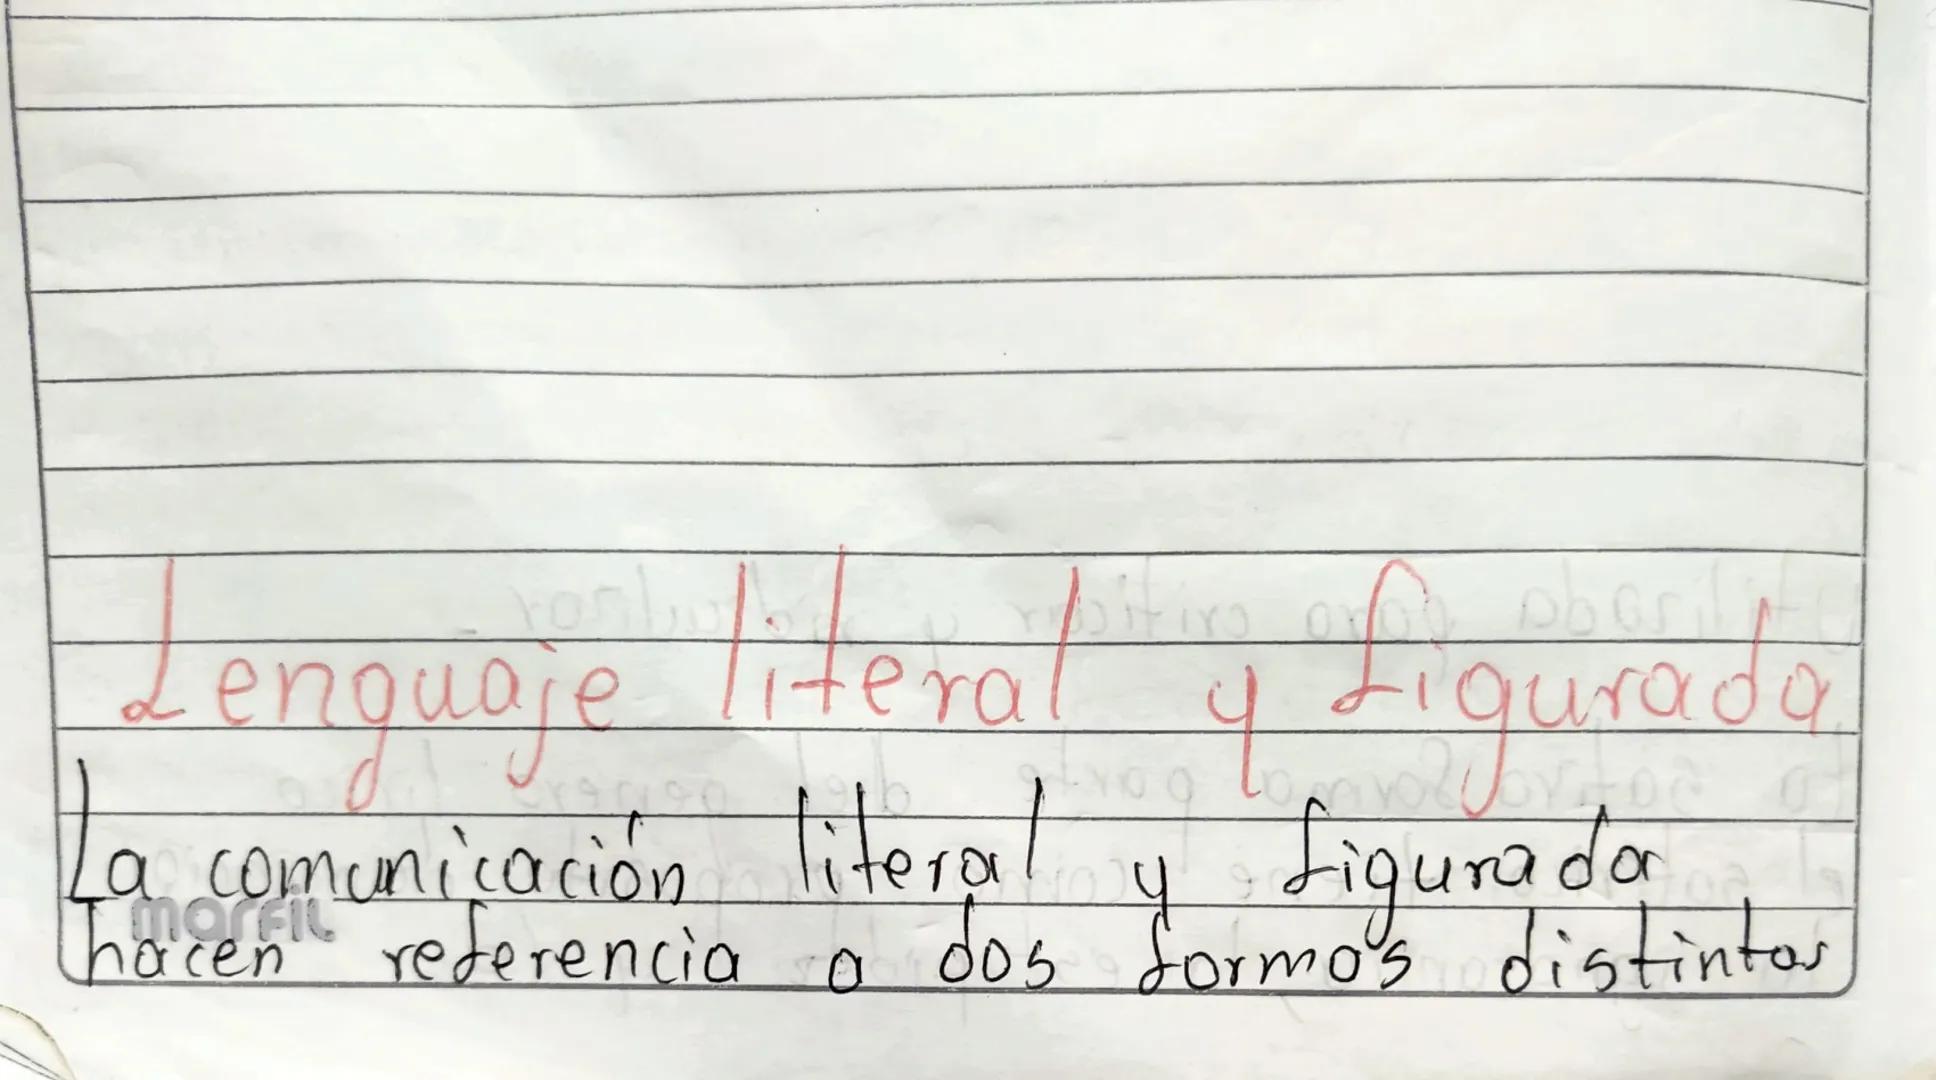 Lenguaje literal y figurada
La comunicación literal y figurada
marfil
hacen referencia a dos formas distintas